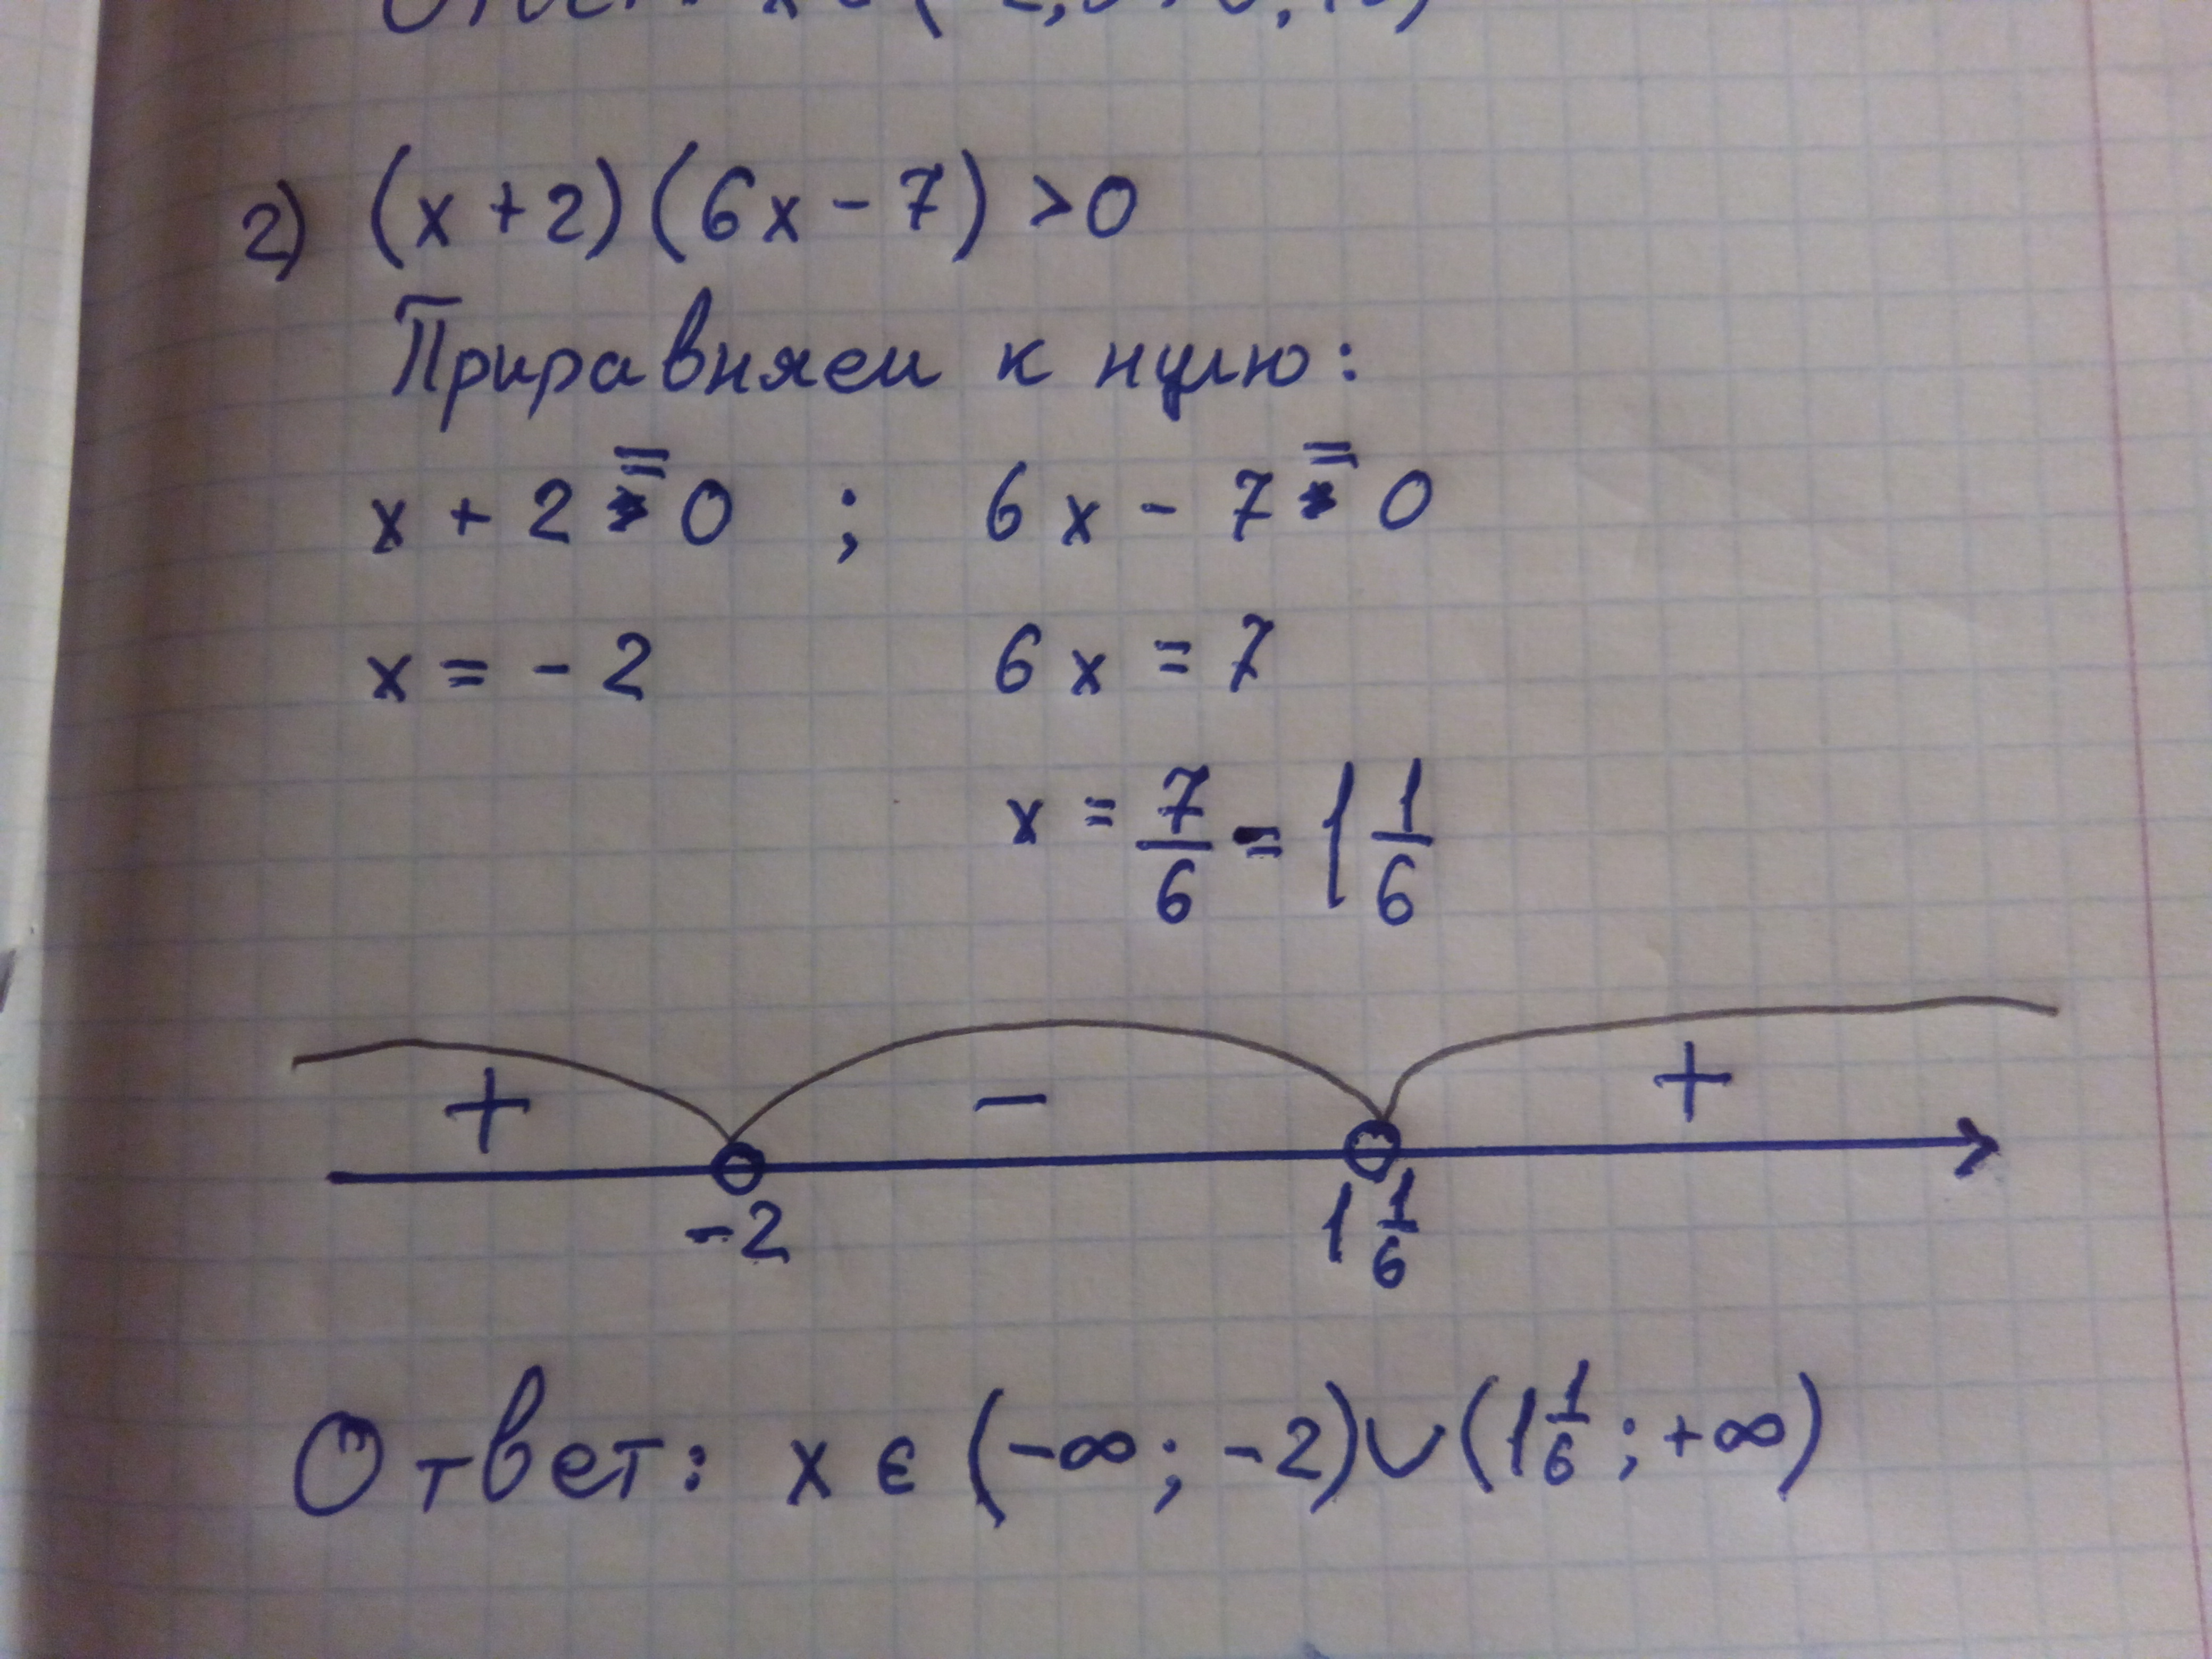 2) (x + 2) (6x - 7) > 0
Приравняем к нулю:
x + 2 = 0 ; 6x - 7 = 0
x = - 2 6x = 7
x = 7/6 = 1 1/6
+ - +
-2 1 1/6
Ответ: x ∈ (-∞; -2) ∪ (1 1/6; +∞)